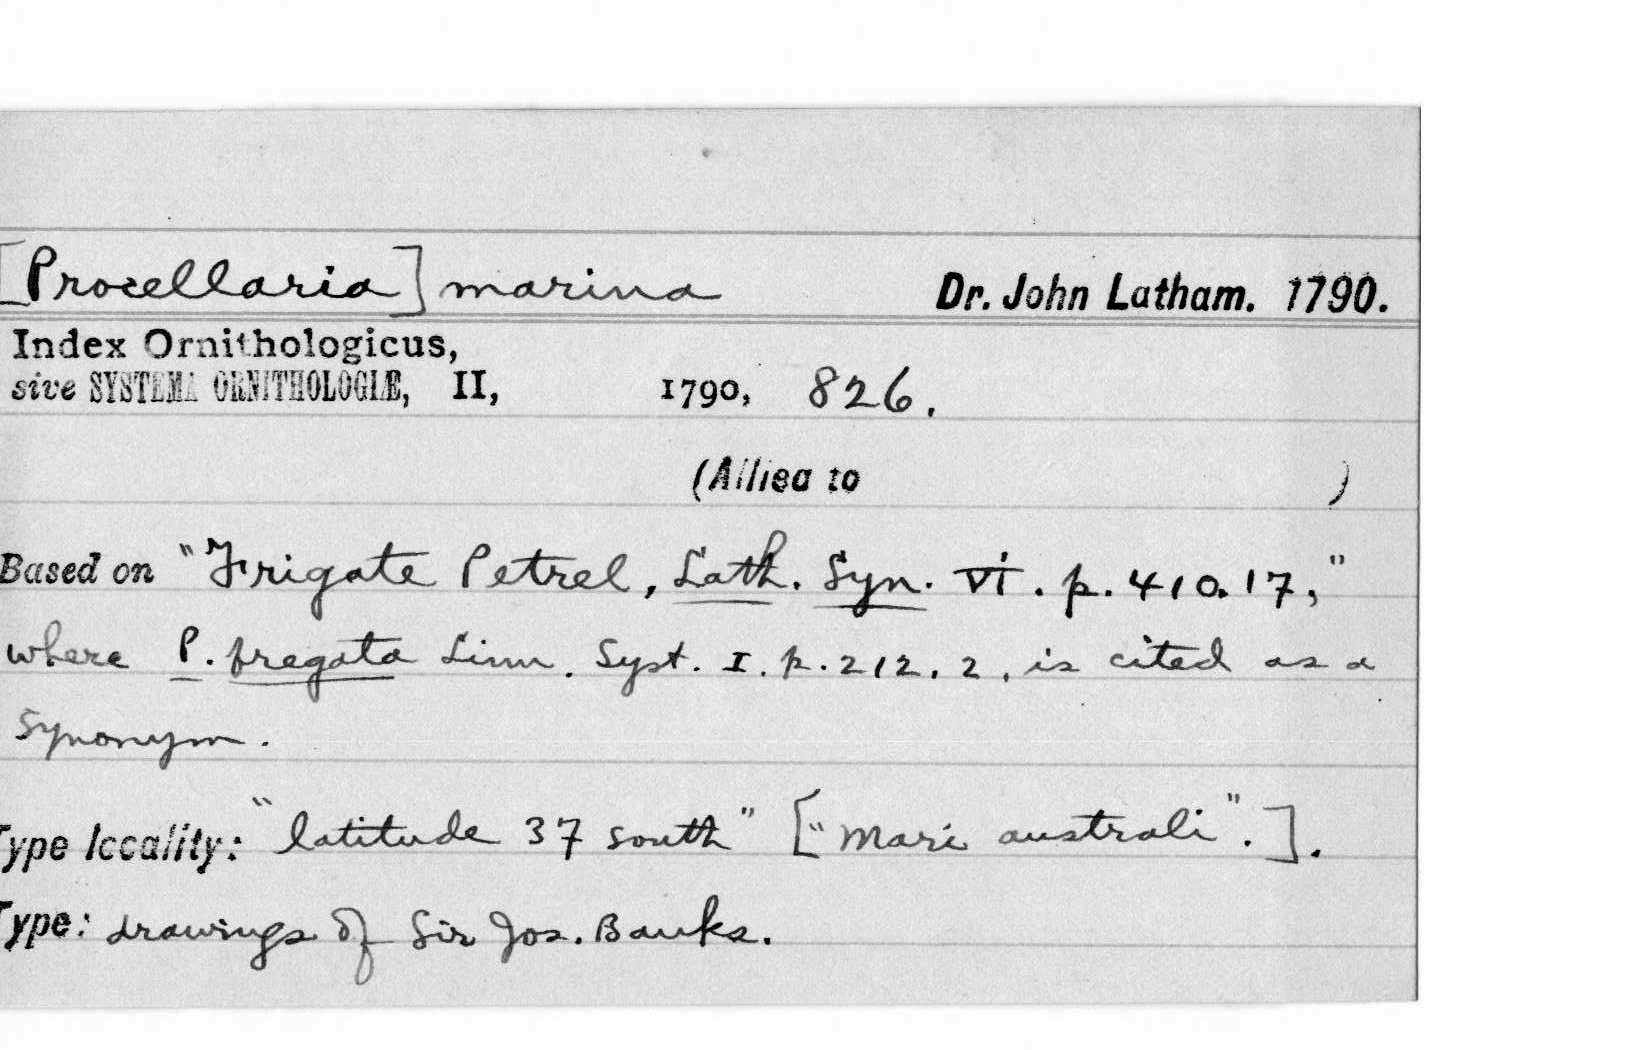 [Procellaria] marina Dr. John Latham. 1790.
Index Ornithologicus,
sive SYSTEMA ORNITHOLOGIÆ, II, 1790, 826.
(Allied to )
Based on "Frigate Petrel, Lath. Syn. VI. p. 410. 17,"
where P. fregata Linn. Syst. I. p. 212. 2, is cited as a
synonym.
Type locality: "latitude 37 south" ["Mari australi".].
Type: drawings of Sir Jos. Banks.